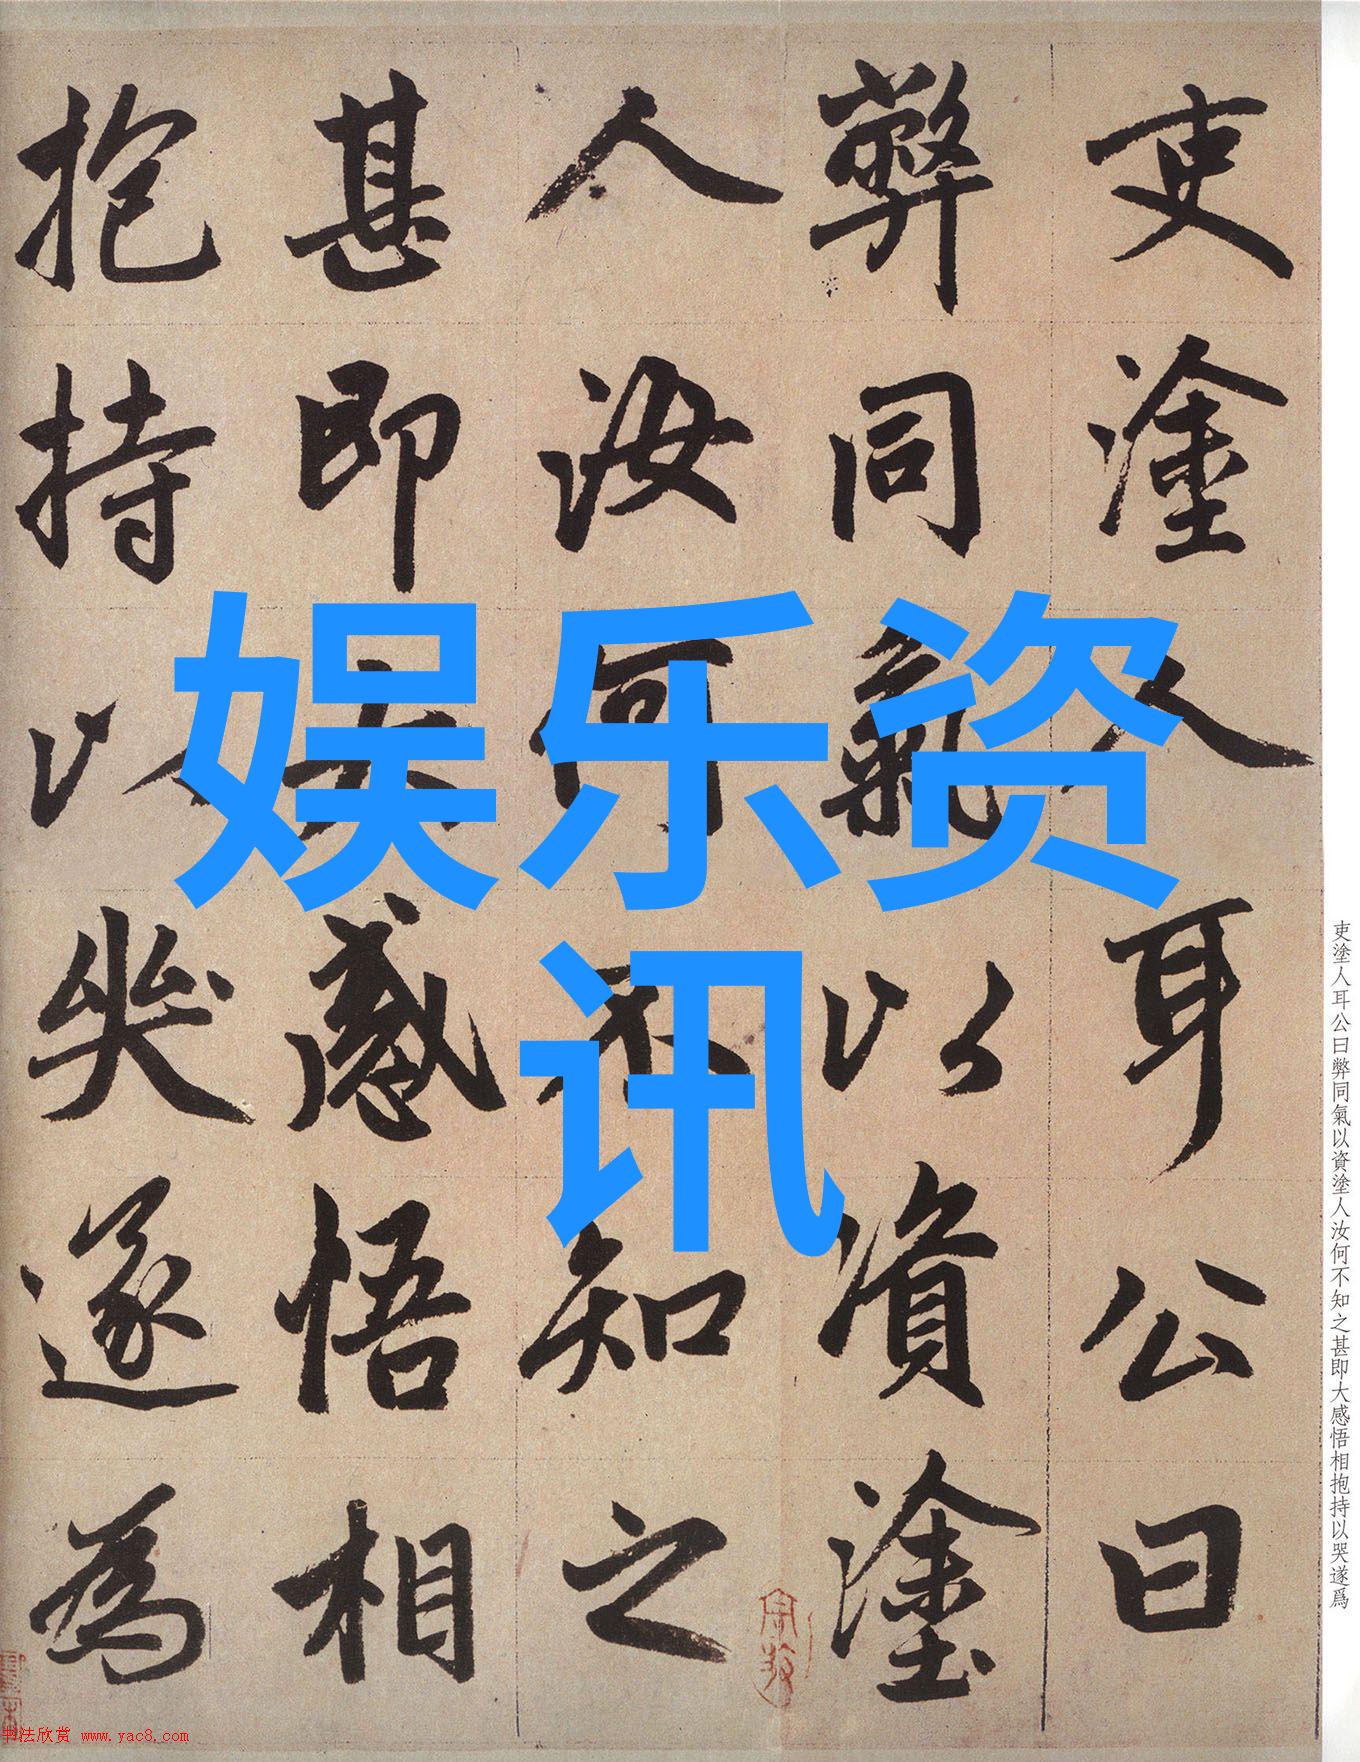 吏塗人耳公曰
弊同氣以資塗
人汝何不知之
甚即大感悟相
抱持以哭遂為
娱乐资
讯
吏塗人耳公曰弊同氣以資塗人汝何不知之甚即大感悟相抱持以哭遂爲
书法欣赏 www.yac8.com